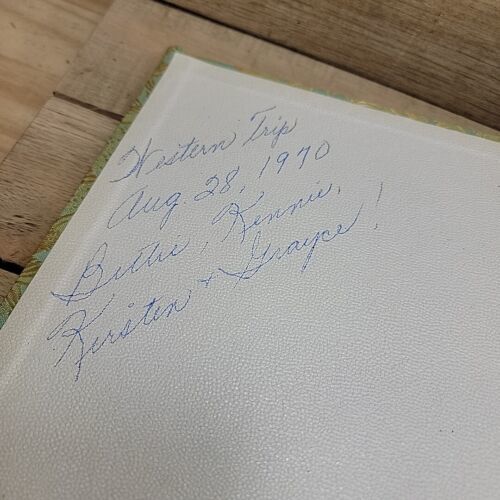 Western Trip
Aug. 28, 1970
Bettie, Kennie,
Kirsten + Grayce!